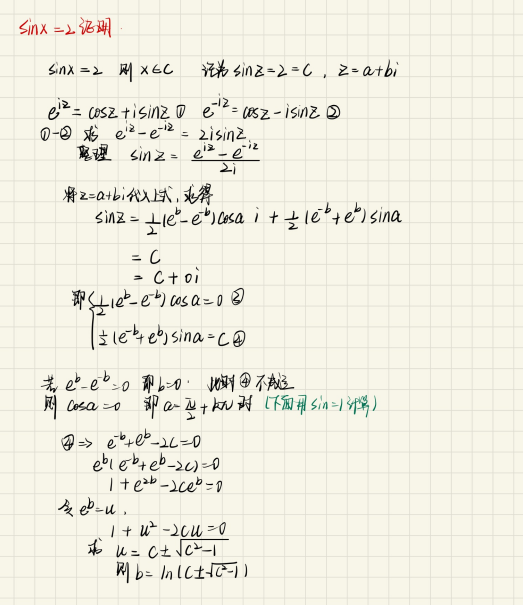 sinx=2 证明
sinx=2 则 x∈C 记为 sinz=2=C , z=a+bi
e^{iz}=cosz+isinz ① e^{-iz}=cosz-isinz ②
①-② 求 e^{iz}-e^{-iz}=2isinz
整理 sinz=\frac{e^{iz}-e^{-iz}}{2i}
将z=a+bi代入上式,求得
sinz=\frac{1}{2}(e^b-e^{-b})cosa i+\frac{1}{2}(e^{-b}+e^b)sina
=C
=C+0i
即{\frac{1}{2}(e^b-e^{-b})cosa=0 ③
\frac{1}{2}(e^{-b}+e^b)sina=C ④
若 e^b-e^{-b}=0 即b=0. 此时④不成立
则 cosa=0 即 a=\frac{π}{2}+kπ时 (下面用sin=1计算)
④⇒ e^{-b}+e^b-2C=0
e^b(e^{-b}+e^b-2C)=0
1+e^{2b}-2Ce^b=0
令e^b=u,
1+u^2-2Cu=0
求 u=C±\sqrt{C^2-1}
则 b=ln(C±\sqrt{C^2-1})